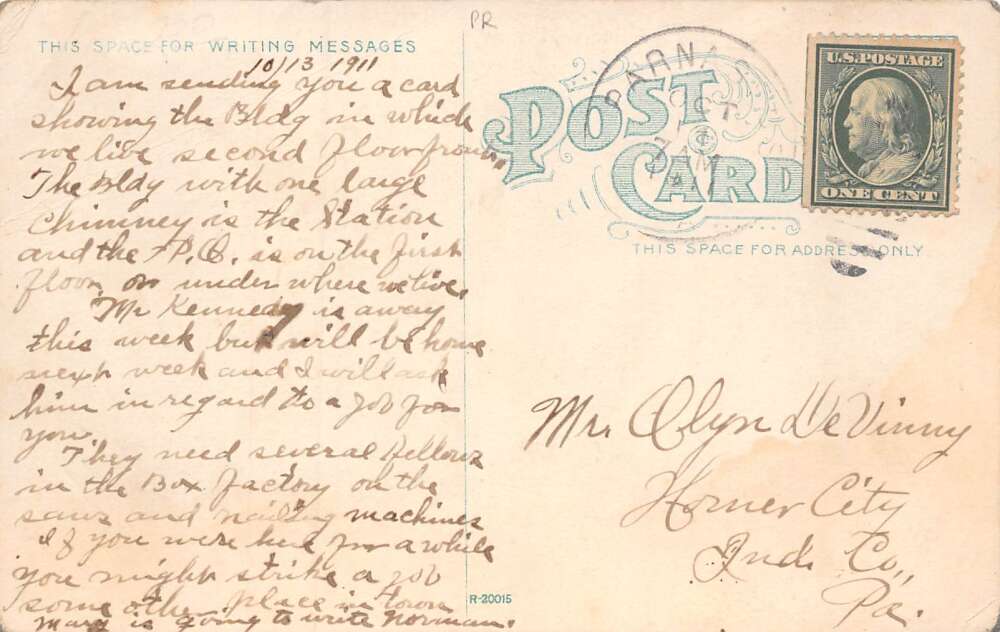 PR
THIS SPACE FOR WRITING MESSAGES
10/13 1911
I am sending you a card
showing the Bldg in which
we live second floor front
The Bldg with one large
Chimney is the Station
and the P.O. is on the first
floor or under where we live.
Mr Kennedy is away
this week but will be home
next week and I will ask
him in regard to a job for
you.
They need several fellows
in the Box factory on the
saws and nailing machines
If you were here for a while
you might strike a job
some other place in town
Mary is going to write Norman.
POST CARD
BARNA
OCT
7 AM
U.S. POSTAGE
ONE CENT
THIS SPACE FOR ADDRESS ONLY
Mr. Olyn DeVinny
Homer City
Ind. Co.,
Pa.
R-20015